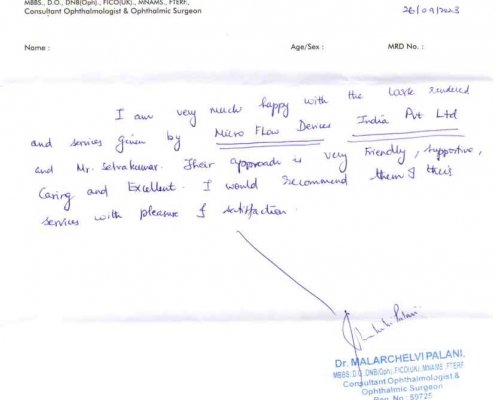 MBBS., D.O., DNB(Oph)., FICO(UK)., MNAMS., FTERF,
Consultant Ophthalmologist & Ophthalmic Surgeon
26/09/2023
Name : Age/Sex : MRD No. :
I am very much happy with the work rendered
and services given by Micro Flow Devices India Pvt Ltd
and Mr. Selvakumar. Their approach is very Friendly, supportive,
Caring and Excellent. I would recommend them & their
services with pleasure & satisfaction.
Dr. MALARCHELVI PALANI,
MBBS.,D.O.,DNB(Oph).,FICO(UK).,MNAMS.,FTERF
Consultant Ophthalmologist &
Ophthalmic Surgeon
Reg. No : 59725